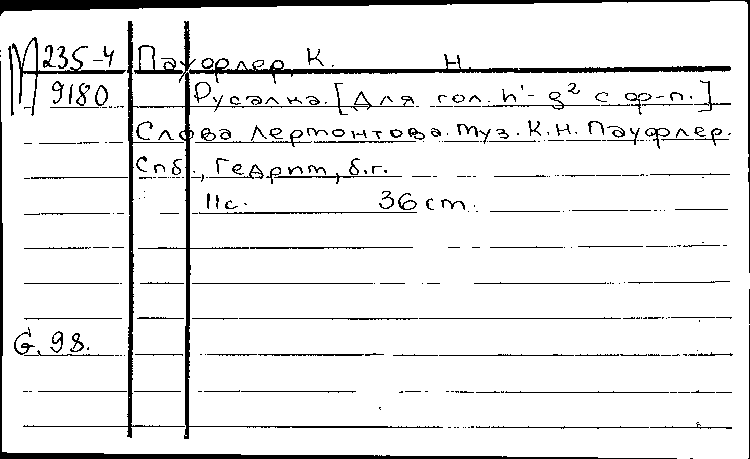 М 235-4 Пауфлер, К. Н.
9180 Русалка. [Для гол. h¹- g² с ф-п.]
Слова Лермонтова. Муз. К. Н. Пауфлер.
Спб., Гедрим, б.г.
11с. 36 cm.
G. 98.